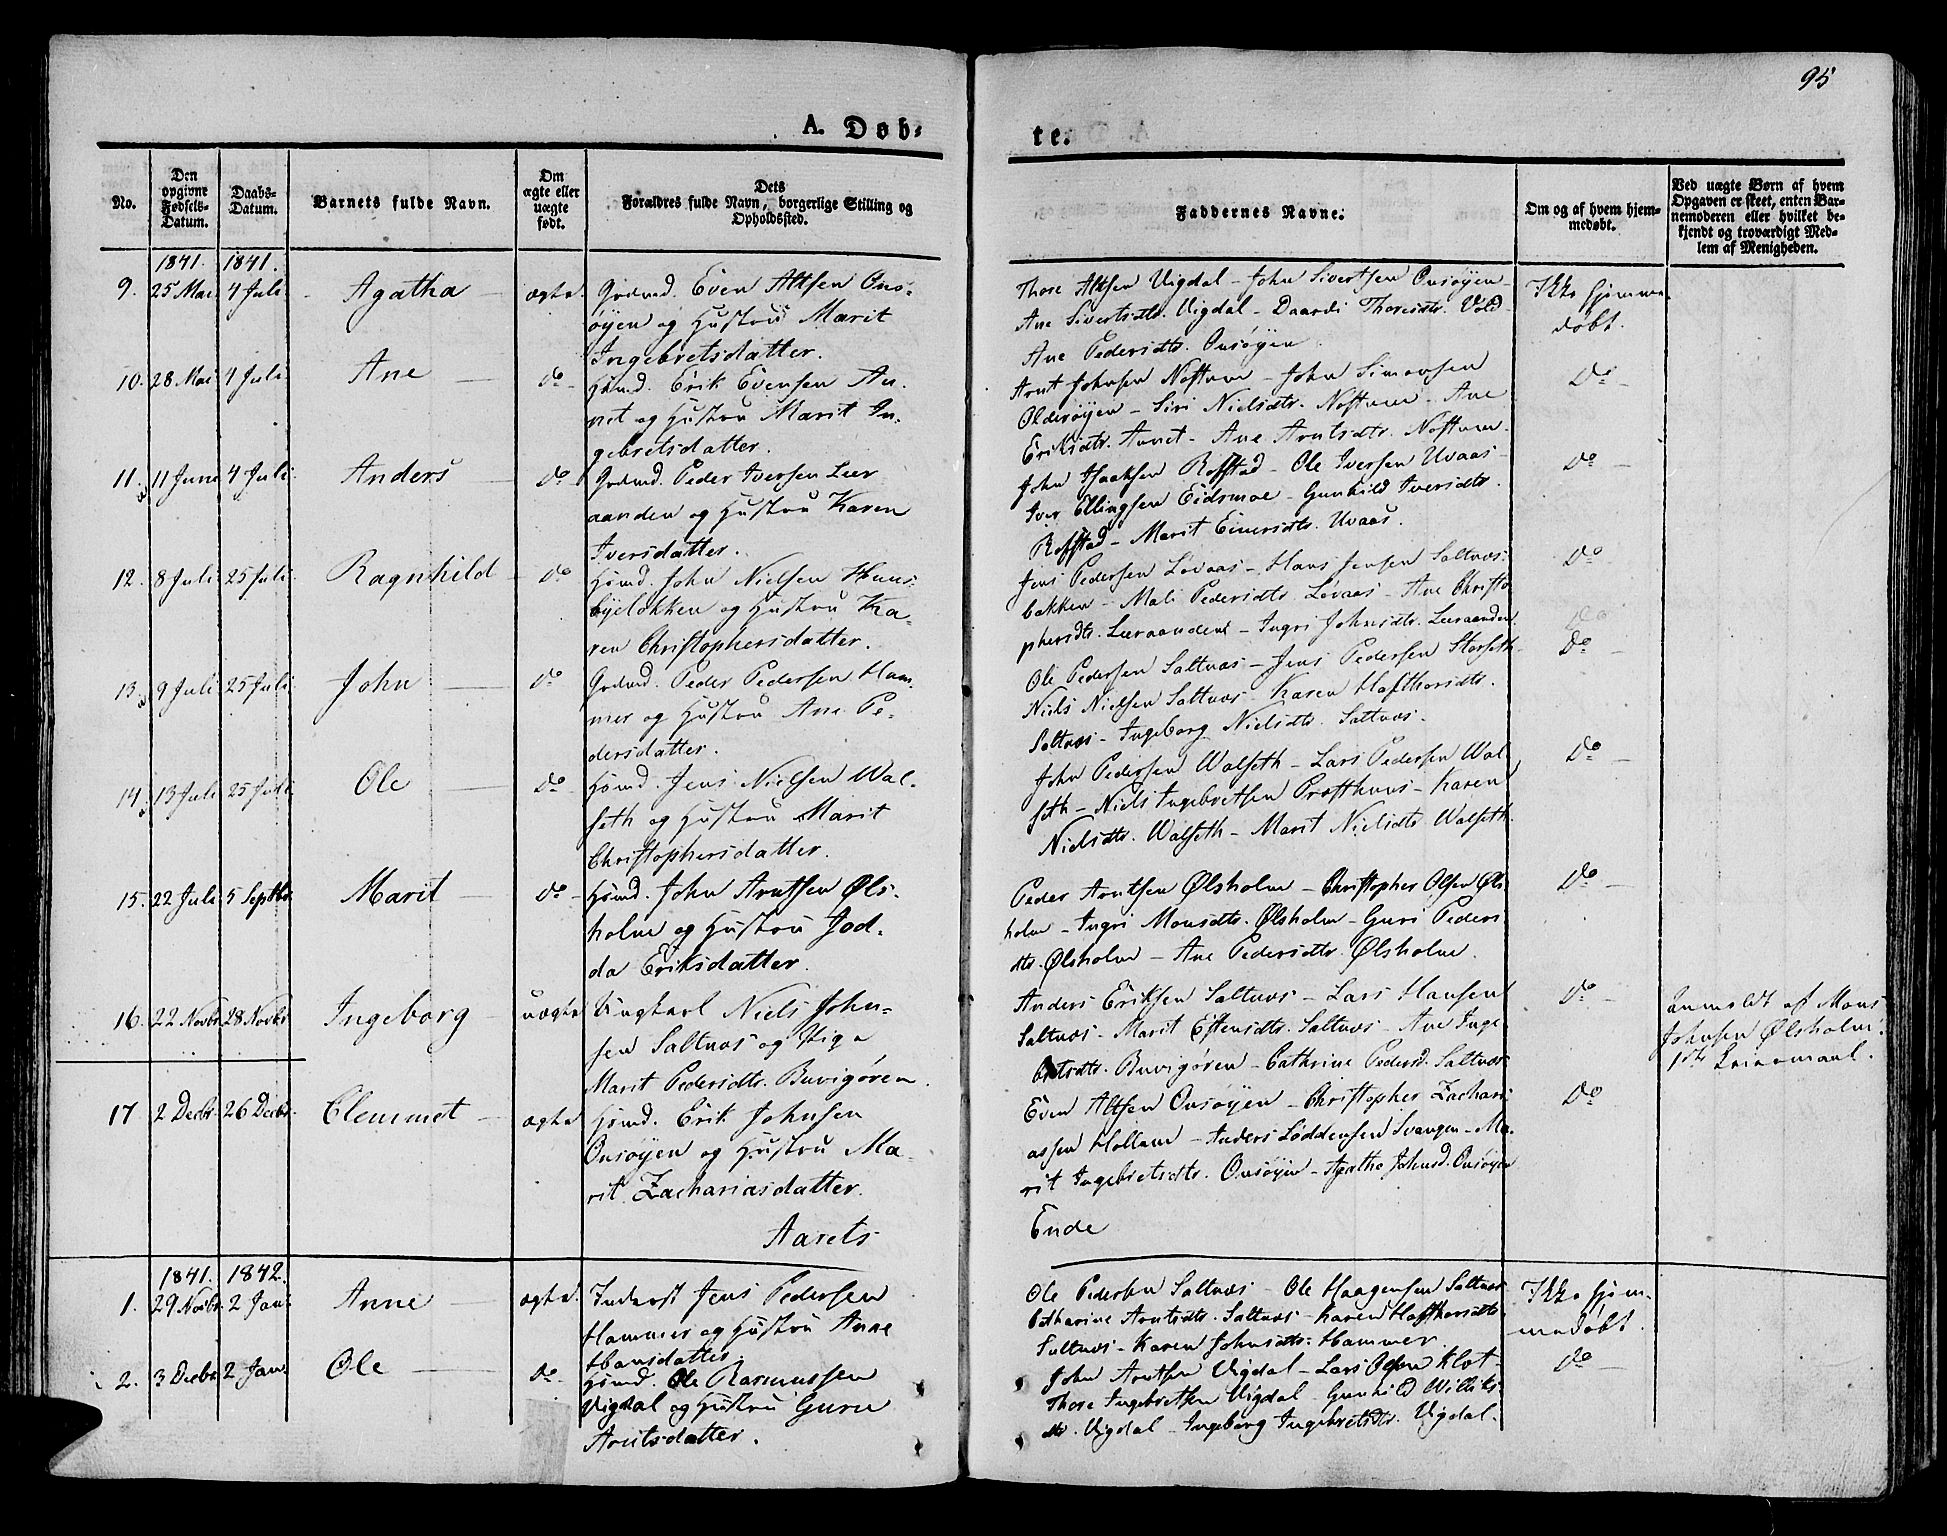 95
A. Døb-
te.
No.
Den opgivne Fødsels-Datum.
Daabs-Datum.
Barnets fulde Navn.
Om ægte eller uægte født.
Dets Forældres fulde Navn, borgerlige Stilling og Opholdssted.
Faddernes Navne.
Om og af hvem hjemmedøbt.
Ved uægte Børn af hvem Opgaven er skeet, enten Barnemoderen eller hvilket bekjendt og troværdigt Medlem af Menigheden.
1841. 1841.
9. 25 Mai 4 Juli Agatha ægte. Grdmd. Even Altsen Ons-
øyen og Hustru Marit
Ingebretsdatter.
Thore Altsen Vigdal - John Sivertsen Onsøyen -
Ane Sivertsdtr. Vigdal - Daardi Thoresdtr. Vold -
Ane Pedersdtr. Onsøyen
Ikke hjemme-
døbt.
10. 28 Mai 4 Juli Ane do Hsmd. Erik Evensen An-
net og Hustru Marit In-
gebretsdatter.
Arnt Johnsen Noftum - John Simonsen
Olderøyen - Siri Nielsdtr. Noftum - Ane
Eriksdtr. Annet - Ane Arntsdtr. Noftum.
do
11. 11 Juni 4 Juli Anders do Grdmd. Peder Iversen Leer
aanden og Hustru Karen
Iversdatter.
John Isaaksen Rofstad - Ole Iversen Uvaas -
Iver Ellingsen Eidsmoe - Gunhild Iversdtr.
Rofstad - Marit Einersdtr. Uvaas.
do
12. 8 Juli 25 Juli Ragnhild do Hsmd. John Nielsen Huus-
byeløkken og Hustru Ka-
ren Christophersdatter.
Jens Pedersen Løvaas - Hans Jensen Saltnæs-
bakken - Mali Pedersdtr. Løvaas - Ane Christo
phersdtr. Leeraanden - Ingri Johnsdtr. Leeraanden
do
13. 9 Juli 25 Juli John do Grdmd. Peder Pedersen Ham-
mer og Hustru Ane Pe-
dersdatter.
Ole Pedersen Saltnæs - Jens Pedersen Storseth
Niels Nielsen Saltnæs - Karen Hafthorsdtr.
Saltnæs - Ingeborg Nielsdtr. Saltnæs.
do
14. 13 Juli 25 Juli Ole do Hsmd. Jens Nielsen Wal-
seth og Hustru Marit
Christophersdatter.
John Pedersen Walseth - Lars Pedersen Wal
seth - Niels Ingebretsen Præsthuus - Karen
Nielsdtr. Walseth - Marit Nielsdtr. Walseth.
do
15. 22 Juli 5 Septbr Marit do Hsmd. John Arntsen Øls-
holm og Hustru Jod-
da Eriksdatter.
Peder Arntsen Ølsholm - Christopher Olsen Øls
holm - Ingri Monsdtr. Ølsholm - Guri Peders
dtr. Ølsholm - Ane Pedersdtr. Ølsholm.
do
16. 22 Novbr 28 Novbr Ingeborg uægte Ungkarl Niels John-
sen Saltnæs og Pige
Marit Pedersdtr. Buvigøren.
Anders Eriksen Saltnæs - Lars Hansen
Saltnæs - Marit Estensdtr. Saltnæs - Ane Inge-
bretsdtr. Buvigøren - Cathrine Pedersd. Saltnæs
do
Anmeldt af Mons
Johnsen Ølsholm.
1ste Leiermaal.
17 2 Decbr 26 Decbr. Clemmet ægte Hsmd. Erik Johnsen
Onsøyen og Hustru Ma-
rit Zachariasdatter.
Even Altsen Onsøyen - Christopher Zachari
assen Hollum - Anders Loddensen Svangen - Ma-
rit Ingebretsdtr. Onsøyen - Agatha Johnsd. Onsøyen
do
Aarets
Ende
1841. 1842.
1. 29 Novbr 2 Jan Anne ægte. Inderst Jens Pedersen
Hammer og Hustru Anne
Hansdatter.
Ole Pedersen Saltnæs - Ole Haagensen Saltnæs
Catharine Arntsdtr. Saltnæs - Karen Hafthorsdtr.
Saltnæs - Karen Johnsdtr. Hammer
Ikke hjem-
medøbt.
2. 3 Decbr 2 Jan. Ole do Hsmd. Ole Rasmussen
Vigdal og Hustru Guru
Arntsdatter.
John Arntsen Vigdal - Lars Olsen Klot -
Thore Ingebretsen Vigdal - Gunhild Williks-
dtr. Vigdal - Ingeborg Ingebretsdtr. Vigdal.
do